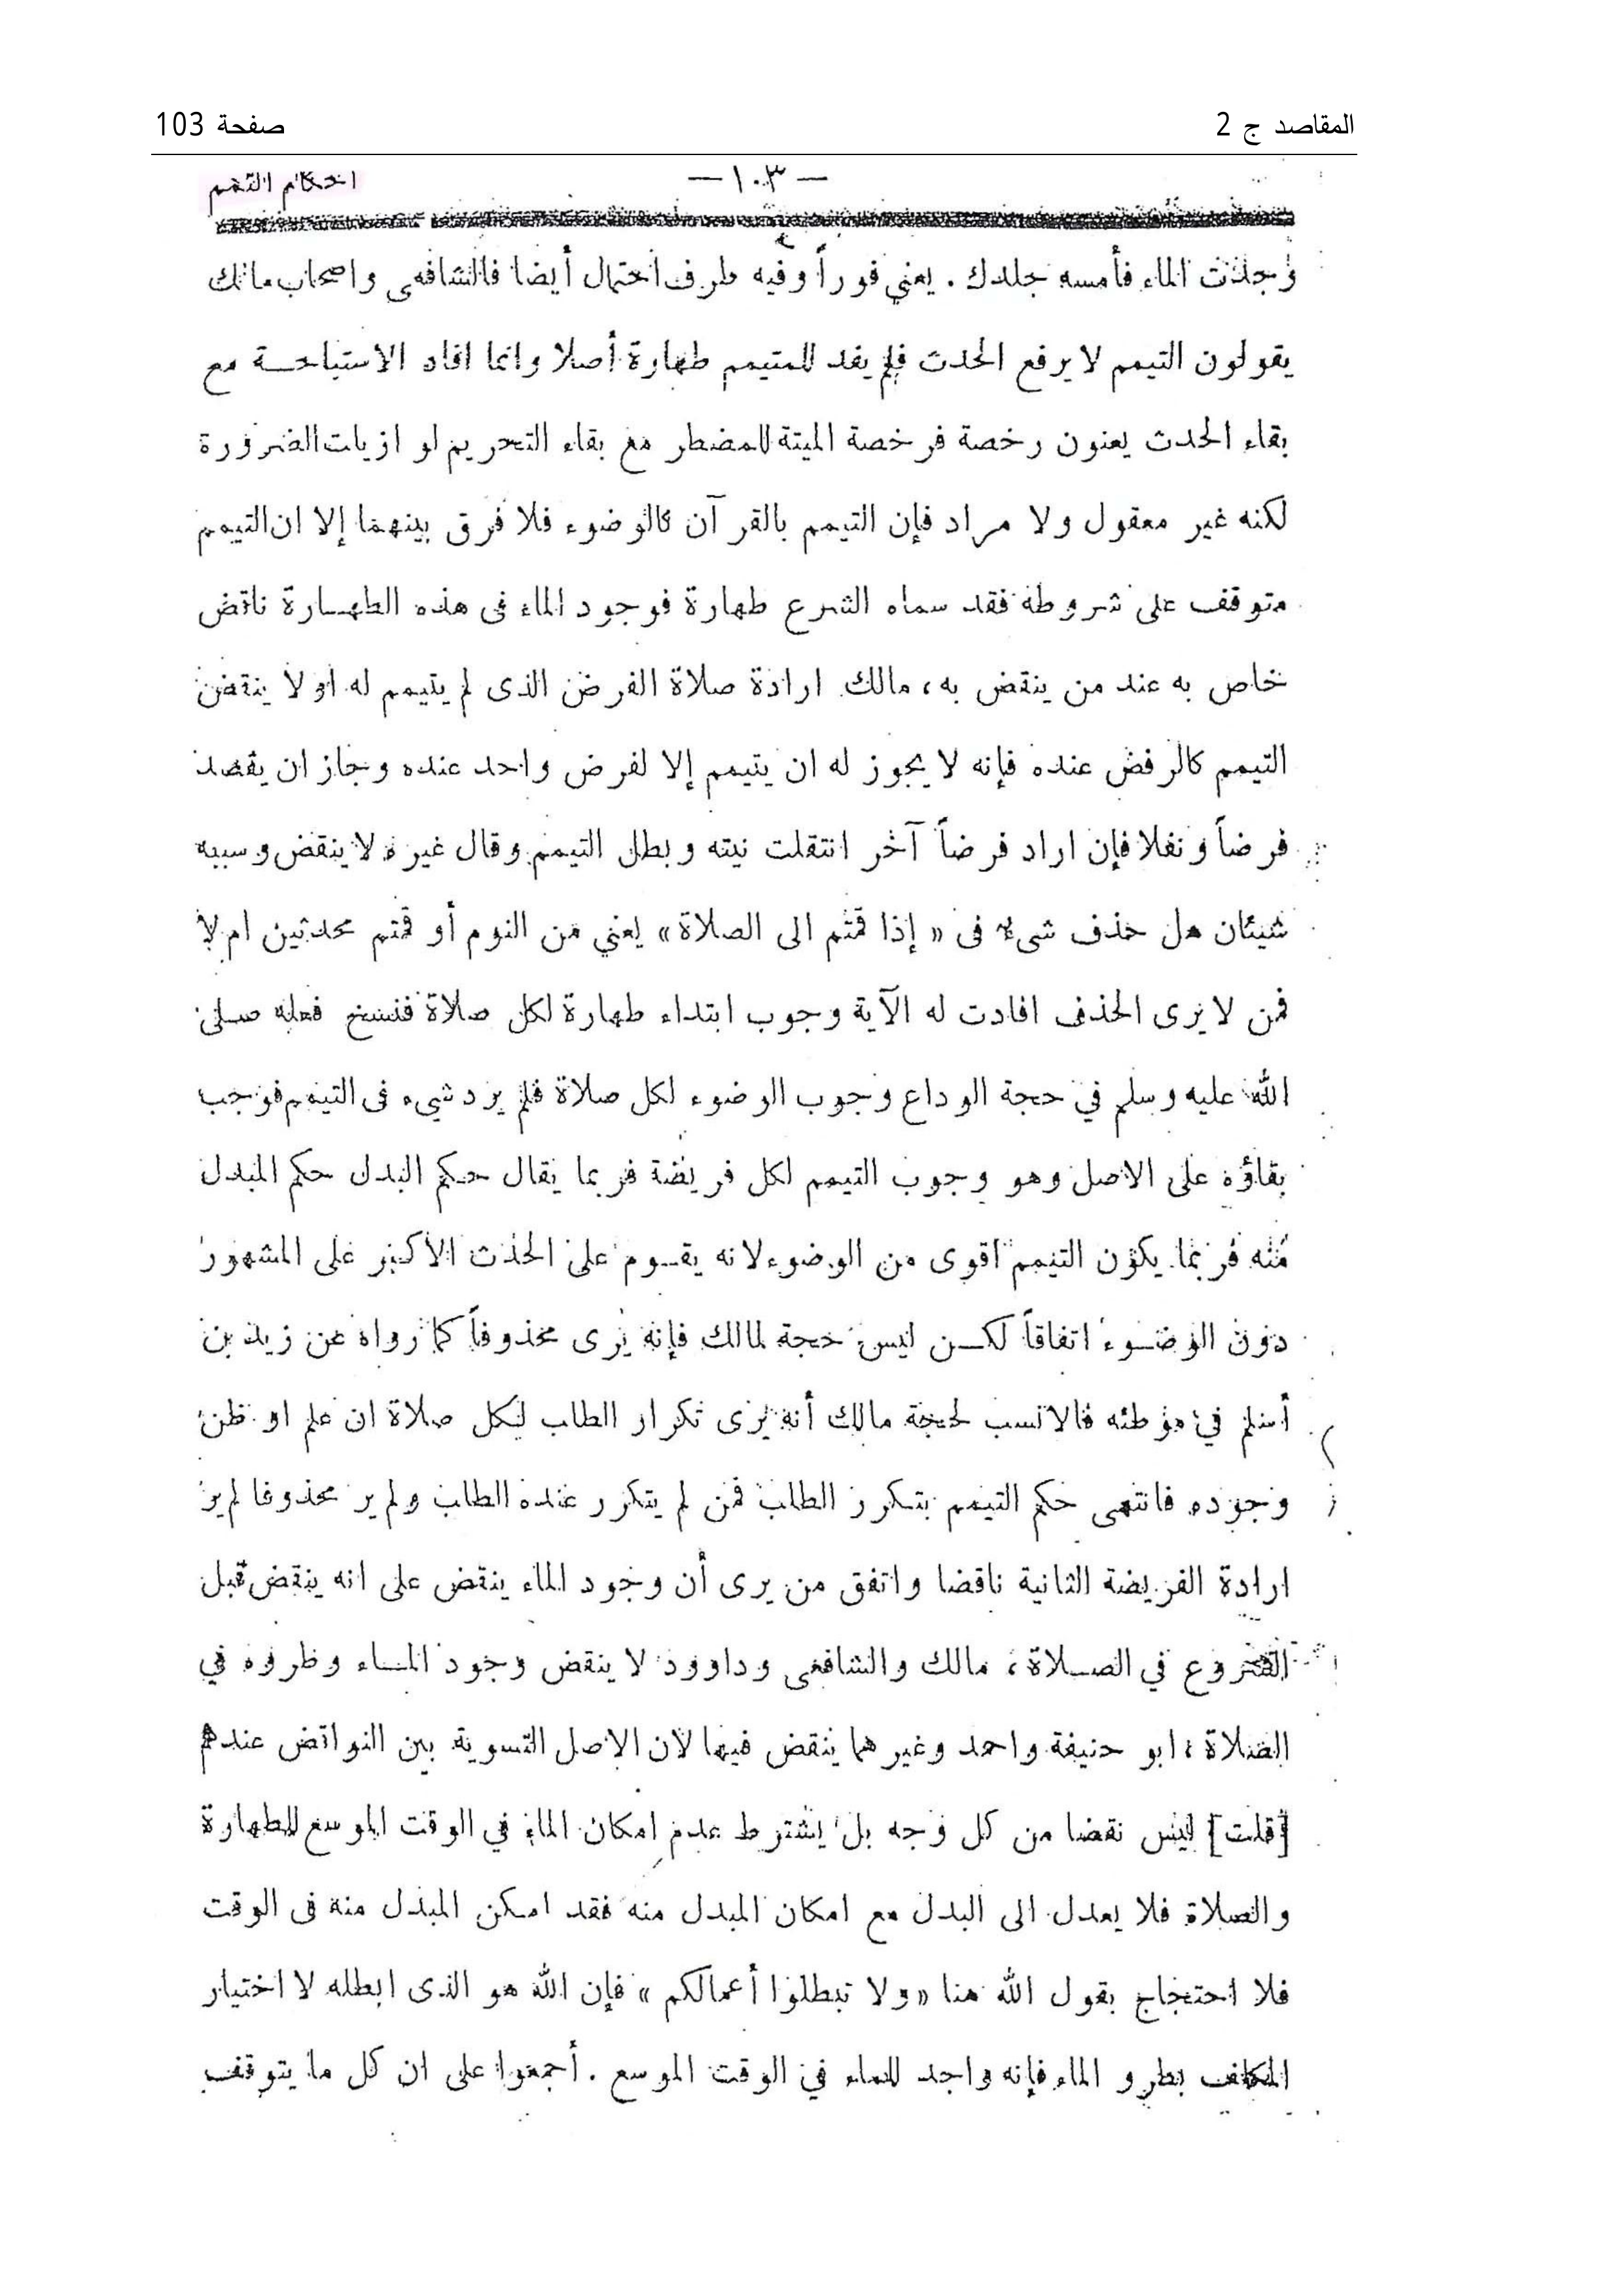 المقاصد ج 2
صفحة 103
— ١٠٣ —
احكام التيمم
وجدت الماء فأمسه جلدك . يعني فوراً وفيه طرف احتمال أيضا فالشافعى واصحاب مالك
يقولون التيمم لا يرفع الحدث فلم يفد للمتيمم طهارة أصلا وانما افاد الاستباحـة مع
بقاء الحدث يعنون رخصة فرخصة الميتة للمضطر مع بقاء التحريم لو ازيلت الضرورة
لكنه غير معقول ولا مراد فإن التيمم بالقرآن كالوضوء فلا فرق بينهما إلا ان التيمم
متوقف على شروطه فقد سماه الشرع طهارة فوجود الماء فى هذه الطهـارة ناقض
خاص به عند من ينقض به، مالك ارادة صلاة الفرض الذى لم يتيمم له اولا ينقض
التيمم كالرفض عنده فإنه لا يجوز له ان يتيمم إلا لفرض واحد عنده وجاز ان يقصد
فرضاً ونفلا فإن اراد فرضاً آخر انتقلت نيته وبطل التيمم وقال غيره لا ينقض وسببه
شيئان هل حذف شىء فى « إذا قمتم الى الصلاة » يعني من النوم أو قمتم محدثين ام لا
فمن لا يرى الحذف افادت له الآية وجوب ابتداء طهارة لكل صلاة فنسخ فعله صلى
الله عليه وسلم في حجة الوداع وجوب الوضوء لكل صلاة فلم يرد شيء فى التيمم فوجب
بقاؤه على الاصل وهو وجوب التيمم لكل فريضة فربما يقال حكم البدل حكم المبدل
منه فربما يكون التيمم اقوى من الوضوء لانه يقـوم على الحدث الأكبر على المشهور
دون الوضـوء اتفاقاً لكـن ليس حجة لمالك فإنه يرى محذوفاً كما رواه عن زيد بن
أسلم في موطئه فالانسب لحجة مالك أنه يرى تكرار الطلب لكل صلاة ان علم او ظن
وجوده فانتهى حكم التيمم بتكرر الطلب فمن لم يتكرر عنده الطلب ولم ير محذوفا لم ير
ارادة الفريضة الثانية ناقضا واتفق من يرى أن وجود الماء ينقض على انه ينقض قبل
الشروع في الصـلاة، مالك والشافعى وداوود لا ينقض وجود المـاء وظروه في
الصلاة، ابو حنيفة واحمد وغيرهما ينقض فيها لان الاصل التسوية بين النواقض عندهم
[قلت] ليس نقضا من كل وجه بل يشترط عدم امكان الماء في الوقت الموسع للطهارة
والصلاة فلا يعدل الى البدل مع امكان المبدل منه فقد امكن المبدل منه فى الوقت
فلا احتجاج بقول الله هنا « ولا تبطلوا أعمالكم » فإن الله هو الذى ابطله لا اختيار
المكلف بطرو الماء فإنه واجد للماء في الوقت الموسع . أجمعوا على ان كل ما يتوقف